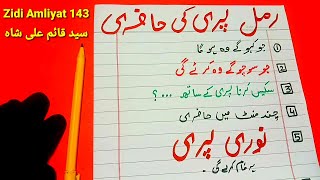 Zidi Amliyat 143
سید قائم علی شاہ
رمل پری کی حاضری
① جو کہو گے وہ ہو گا
② جو سوچو گے وہ کرے گی
③ سیکس کرنا پری کے ساتھ ...؟
④ چند منٹ میں حاضری
⑤ نوری پری
یہ کام کرے گی.